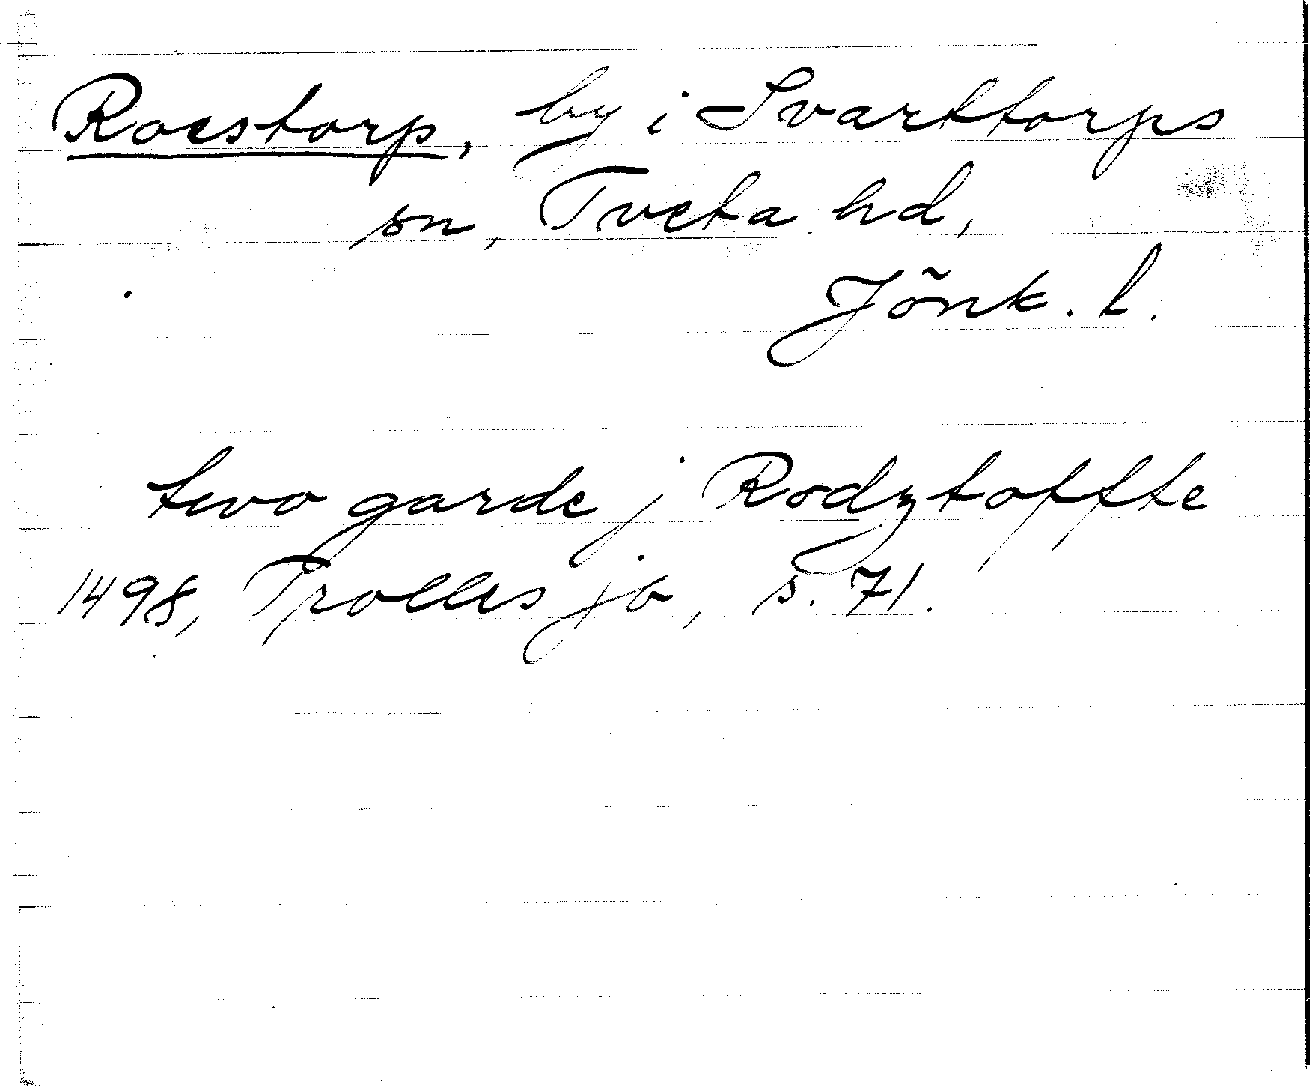 Roestorp, by i Svarttorps
sn, Tveta hd,
Jönk. l.
two garde j Rodztoffte
1498, Trolles jb, s. 71.